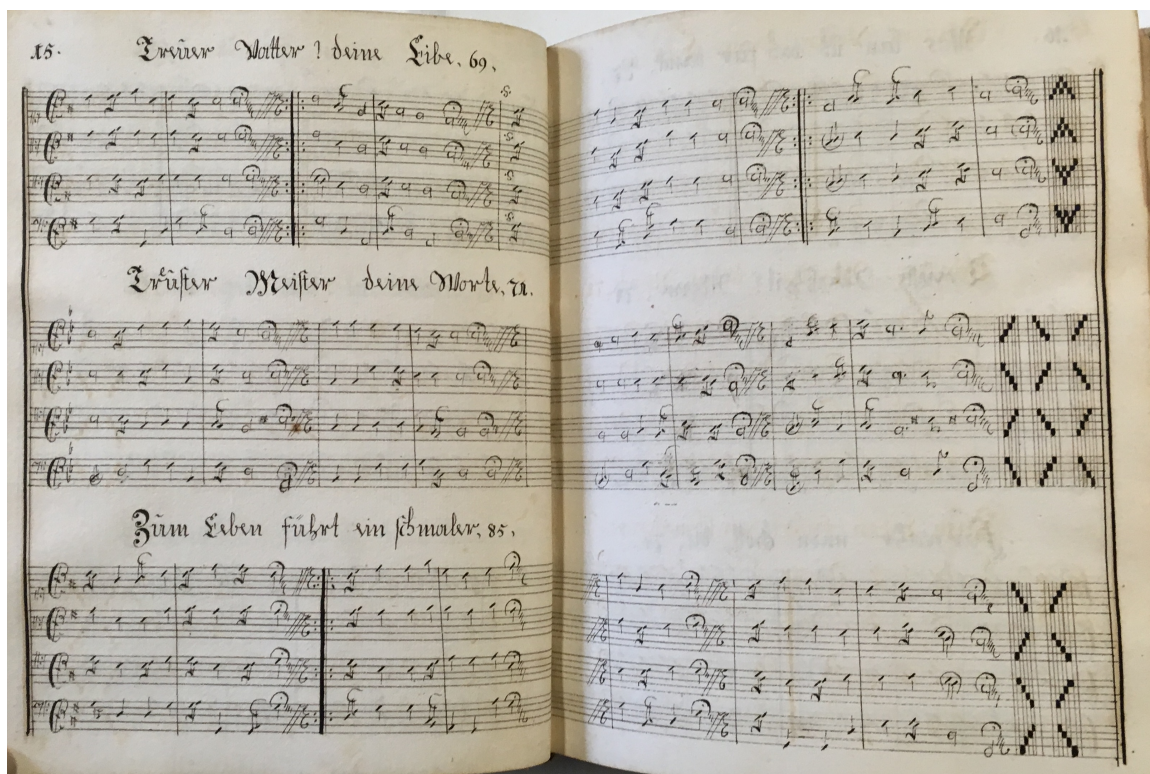 15. Treüer Vatter! deine Libe. 69.
Treüster Meister deine Worte. 71.
Züm Leben führt ein schmaler. 85.